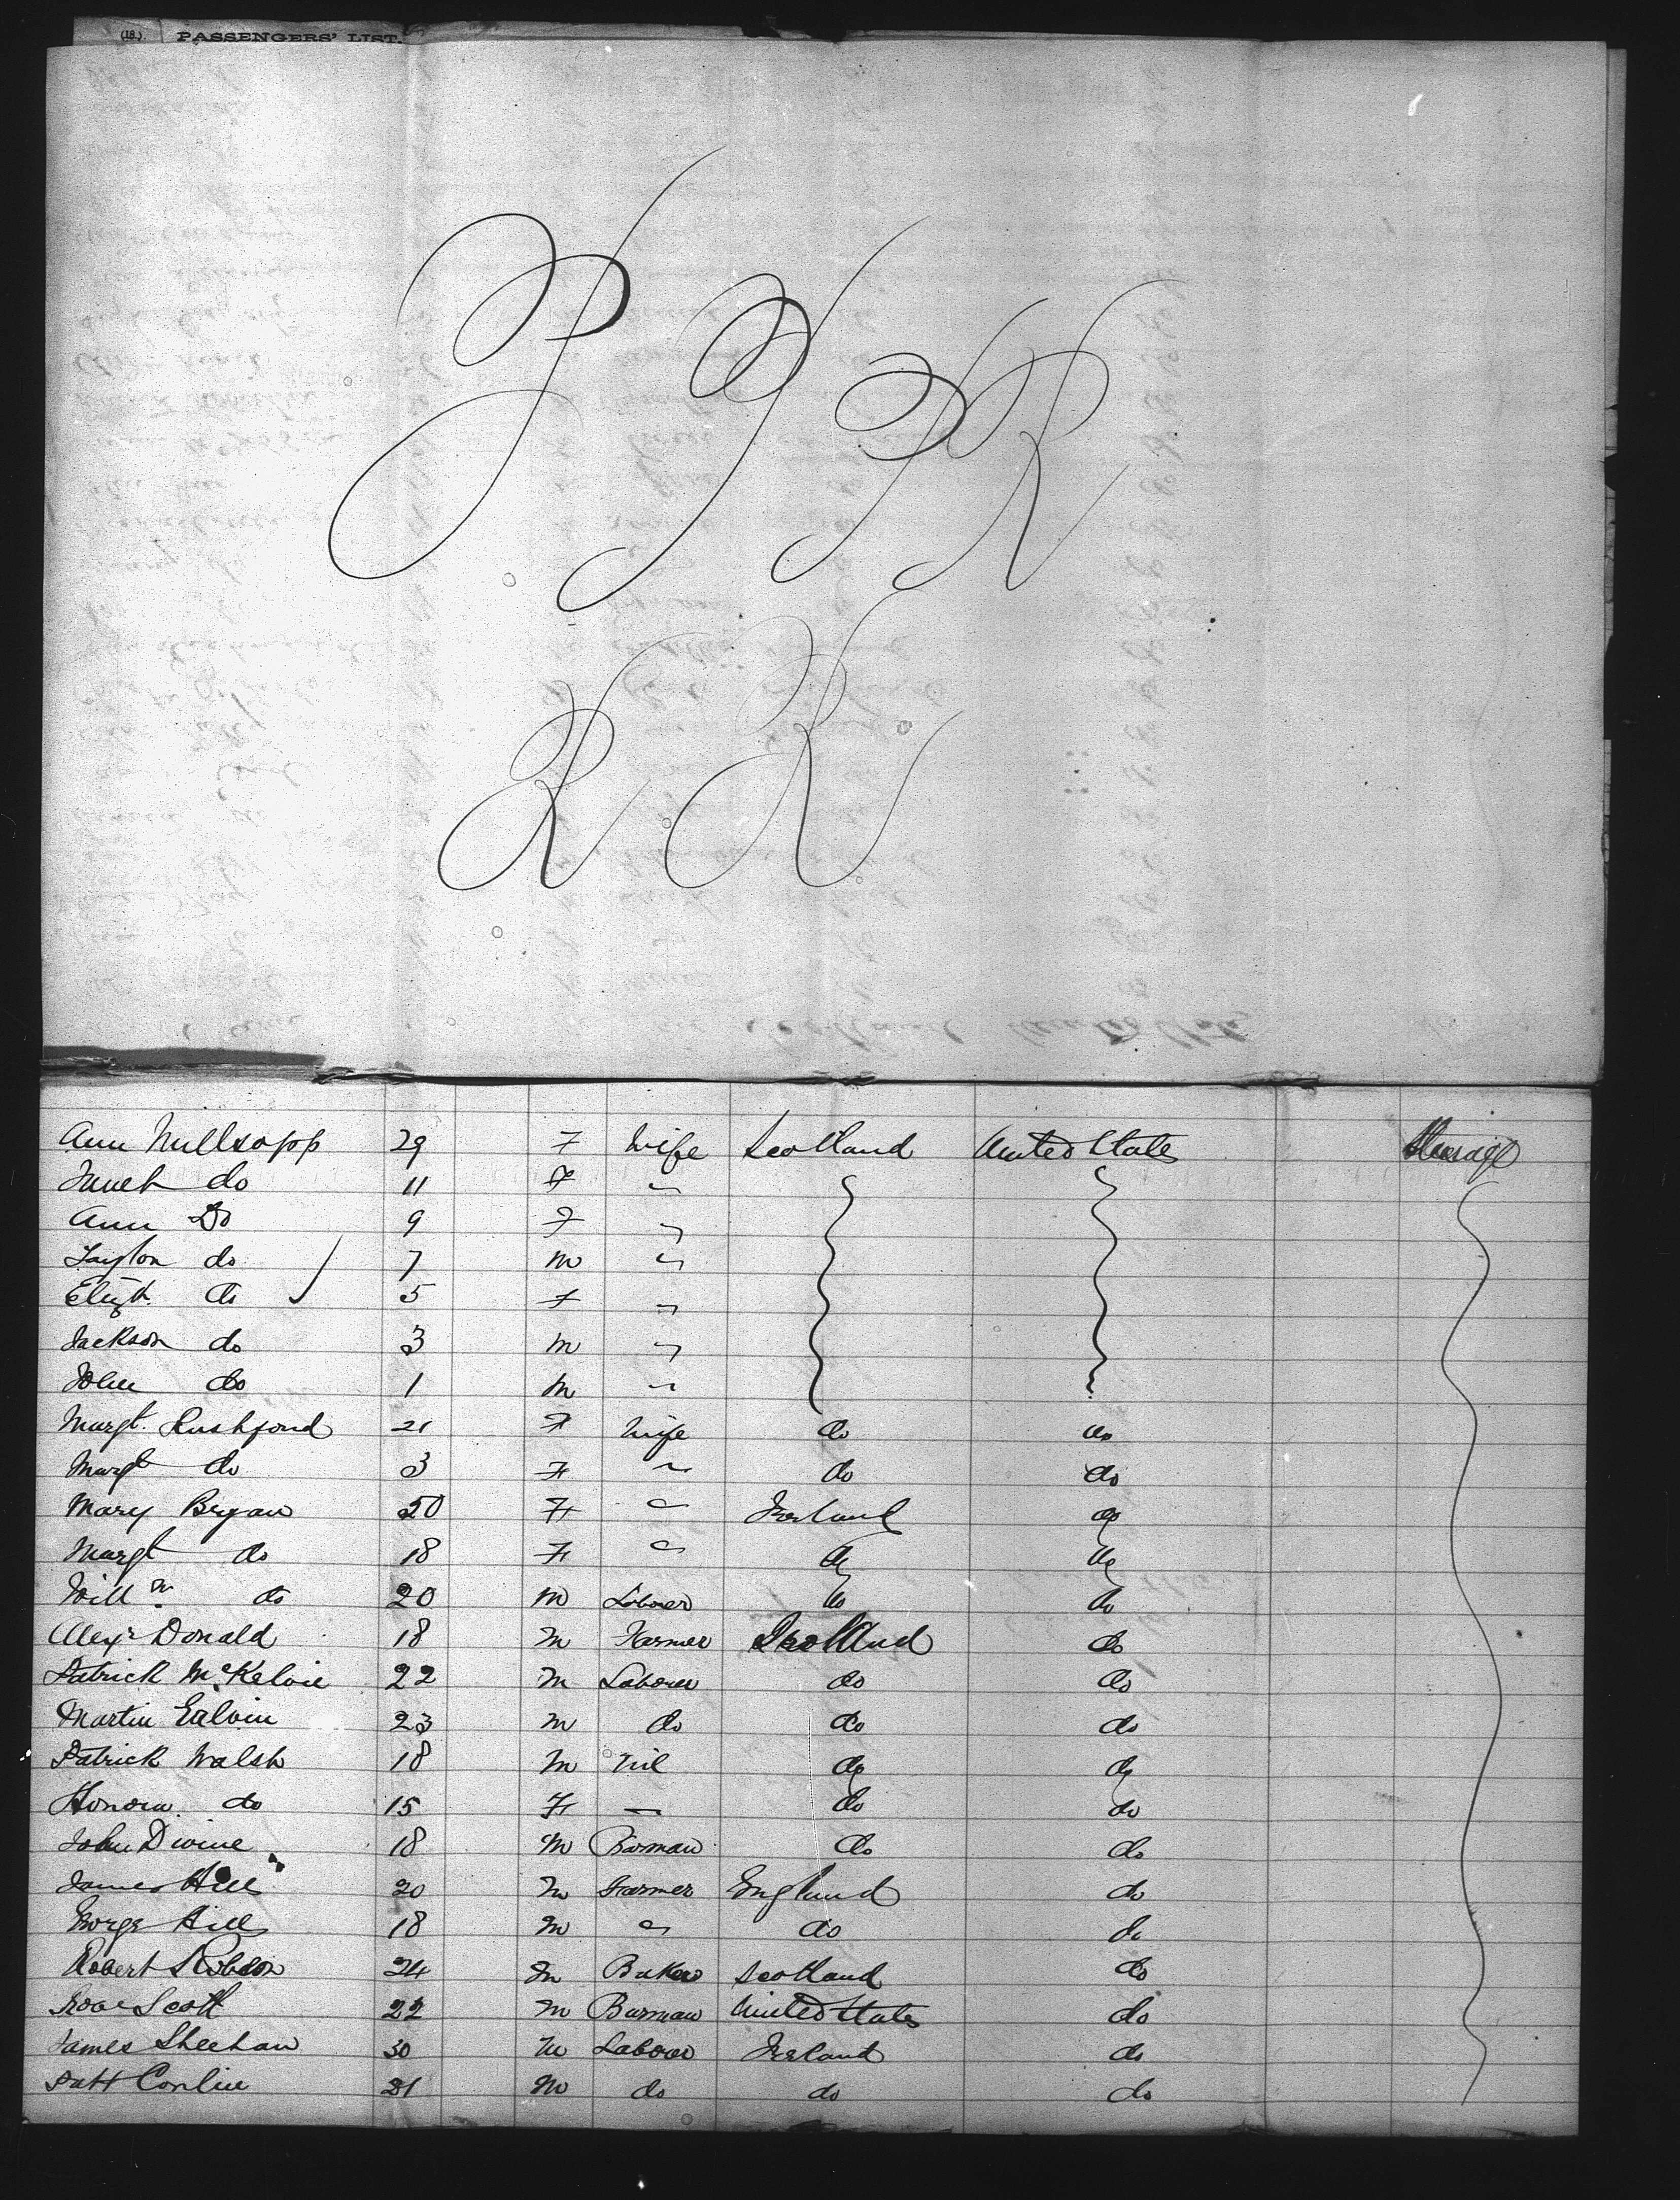 (18.) PASSENGERS' LIST.
P P P R
R R
Ann Millsopp 29 F Wife Scotland United States Steerage
Janet do 11 F "
Ann Do 9 F "
Layton do 7 m "
Elizth. do 5 F "
Jackson do 3 m "
John do 1 m "
Margt. Rushford 21 F Wife do do
Margt do 3 F " do do
Mary Bryan 50 F " Ireland do
Margt do 18 F " do do
Willm. do 20 m Laborer do do
Alexr Donald 18 m Farmer Scotland do
Patrick McKelvie 22 m Laborer do do
Martin Galvin 23 m do do do
Patrick Walsh 18 m nil do do
Honora do 15 F " do do
John Divine 18 m Barman do do
James Hill 20 m Farmer England do
George Hill 18 m " do do
Robert Robson 24 m Baker Scotland do
Scott 22 m Barman United States do
James Sheehan 30 m Laborer Ireland do
Patt Conlin 21 m do do do